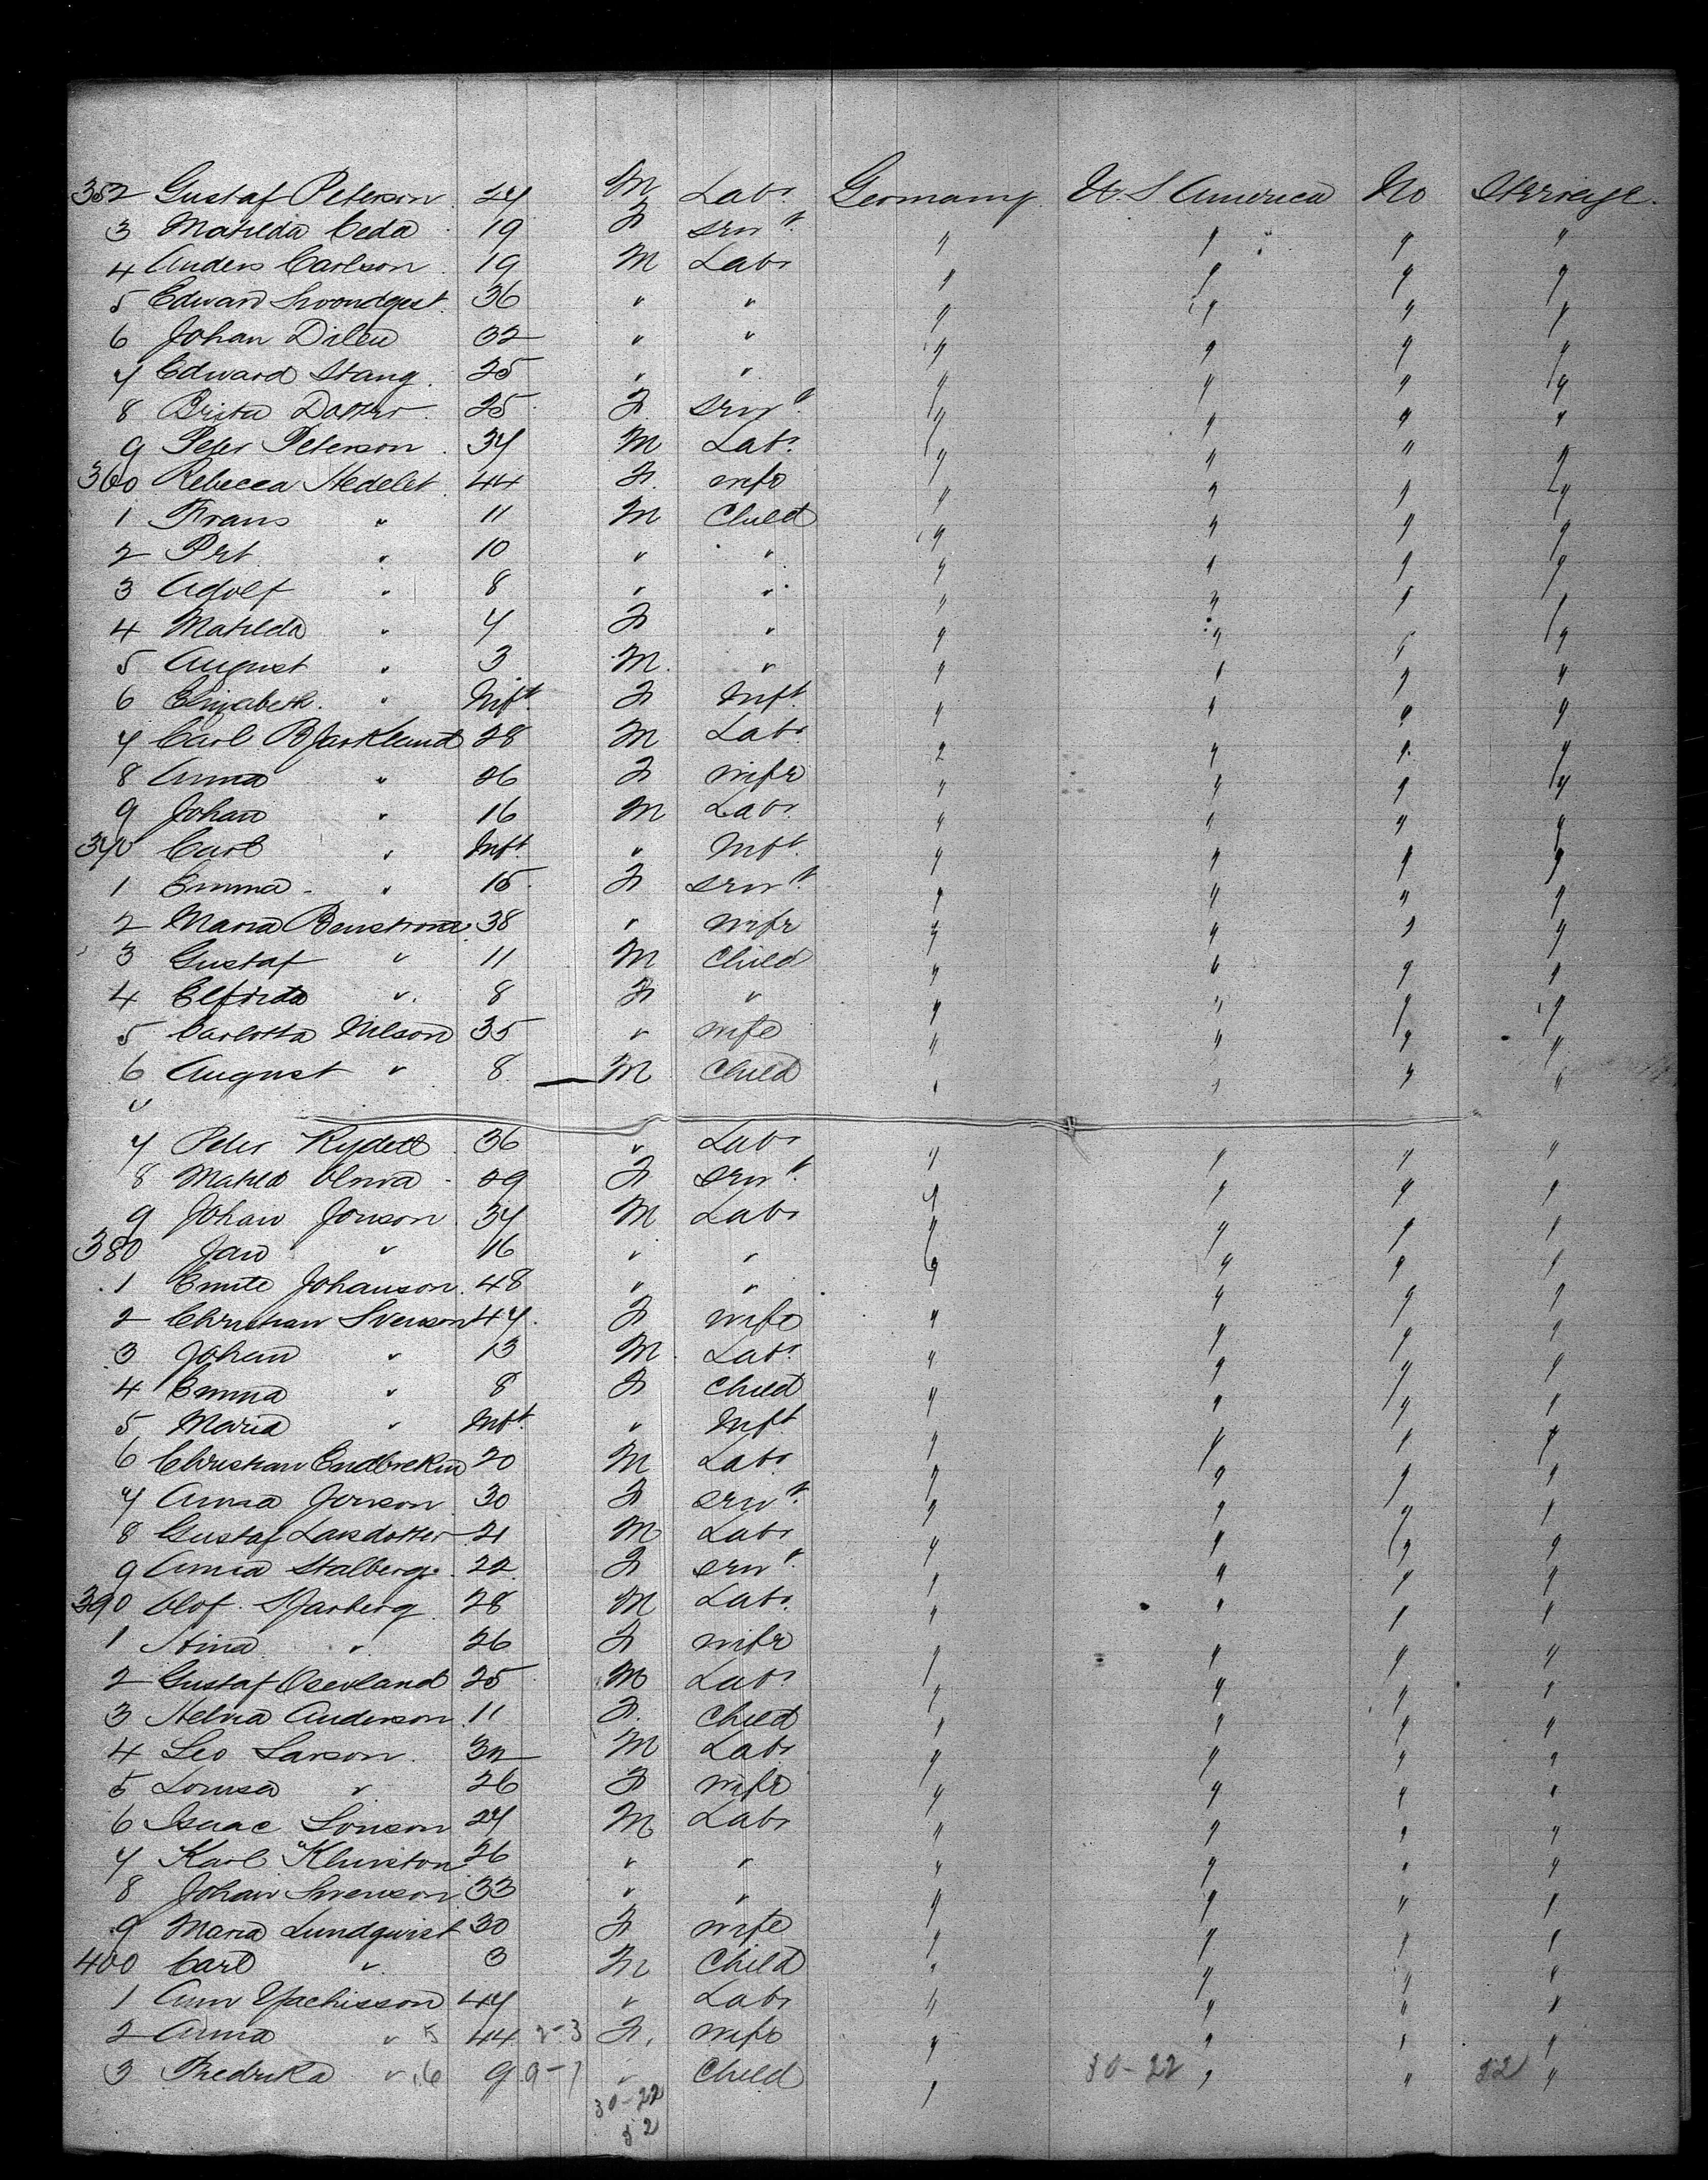 352 Gustaf Peterson 24 M Labr Germany U.S America No Steerage.
3 Matilda Ceda 19 F Servt " " " "
4 Anders Carlson 19 M Labr " " " "
5 Edward 36 " " " " " "
6 Johan Dilen 32 " " " " " "
7 Edward Stang 25 " " " " " "
8 Brita 25 F Servt " " " "
9 Peter Peterson 37 M Labr " " " "
360 Rebecca Hedelet 44 F wife " " " "
1 Frans " 11 M Child " " " "
2 Prt " 10 " " " " " "
3 Adolf " 8 " " " " " "
4 Matilda " 7 F " " " " "
5 August " 3 M " " " " "
6 Elizabeth " Inft F Inft " " " "
7 Carl Bjarklund 28 M Labr " " " "
8 Anna " 26 F wife " " " "
9 Johan " 16 M Labr " " " "
370 Carl " Inft " Inft " " " "
1 Emma " 15 F Servt " " " "
2 Maria 38 " wife " " " "
3 Gustaf " 11 M Child " " " "
4 Elfrida " 8 F " " " " "
5 Carlotta Nilson 35 " wife " " " "
6 August " 8 M Child " " " "
"
7 Peter Rydell 36 " Labr " " " "
8 29 F Servt " " " "
9 Johan Jonson 37 M Labr " " " "
380 Jan " 16 " " " " " "
1 Johanson 48 " " " " " "
2 Christian Svenson 47 F wife " " " "
3 Johan " 13 M Labr " " " "
4 Emma " 8 F Child " " " "
5 Maria " Inft " Inft " " " "
6 Christian 20 M Labr " " " "
7 Anna Jonson 30 F Servt " " " "
8 Gustaf Larsdotter 21 M Labr " " " "
9 Anna Stalberg 22 F Servt " " " "
390 Olof Sjarberg 28 M Labr " " " "
1 Stina " 26 F wife " " " "
2 Gustaf 25 M Labr " " " "
3 Anderson 11 F Child " " " "
4 Leo Larson 32 M Labr " " " "
5 Lomsa " 26 F wife " " " "
6 Isaac Sonson 27 M Labr " " " "
7 Karl 26 " " " " " "
8 Johan Svenson 33 " " " " " "
9 Maria Lundqvist 30 F wife " " " "
400 Carl " 3 M Child " " " "
1 47 " Labr " " " "
2 Anna " 5 44 2-3 F wife " " " "
3 Fredrika " 6 9 9-7 " Child " 30-22 " " 52 "
30-22
52